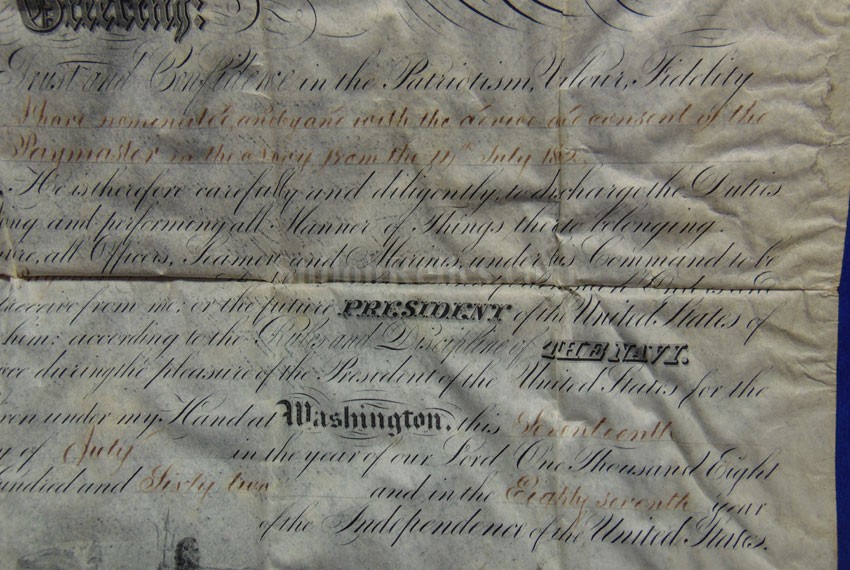 Greeting:
Trust and Confidence in the Patriotism, Valour, Fidelity
I have nominated, and by and with the advice and consent of the
Paymaster in the Navy from the 11th July 1862
He is therefore carefully and diligently, to discharge the Duties
and performing all Manner of Things thereto belonging.
all Officers, Seamen and Marines, under his Command to be
receive from me, or the future PRESIDENT of the United States of
them: according to the Rules and Discipline of THE NAVY.
during the pleasure of the President of the United States for the
under my Hand at Washington, this Seventeenth
of July in the year of our Lord One Thousand Eight
Hundred and Sixty two and in the Eighty seventh year
of the Independence of the United States.